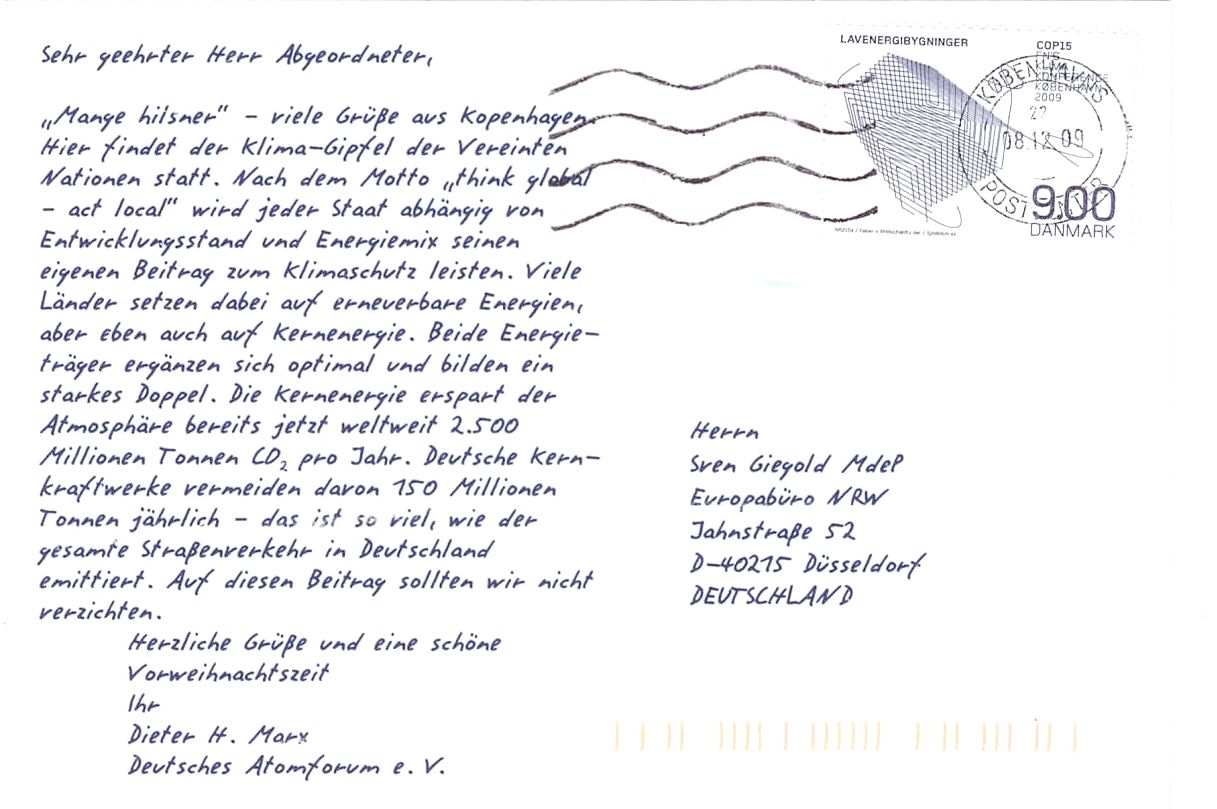 Sehr geehrter Herr Abgeordneter,
„Mange hilsner“ – viele Grüße aus Kopenhagen.
Hier findet der Klima-Gipfel der Vereinten
Nationen statt. Nach dem Motto „think global
– act local“ wird jeder Staat abhängig von
Entwicklungsstand und Energiemix seinen
eigenen Beitrag zum Klimaschutz leisten. Viele
Länder setzen dabei auf erneuerbare Energien,
aber eben auch auf Kernenergie. Beide Energie-
träger ergänzen sich optimal und bilden ein
starkes Doppel. Die Kernenergie erspart der
Atmosphäre bereits jetzt weltweit 2.500
Millionen Tonnen CO₂ pro Jahr. Deutsche Kern-
kraftwerke vermeiden davon 150 Millionen
Tonnen jährlich – das ist so viel, wie der
gesamte Straßenverkehr in Deutschland
emittiert. Auf diesen Beitrag sollten wir nicht
verzichten.
Herzliche Grüße und eine schöne
Vorweihnachtszeit
Ihr
Dieter H. Marx
Deutsches Atomforum e. V.
LAVENERGIBYGNINGER
COP15
FN'S
KLIMA
KONFERENCE
KØBENHAVN
2009
KØBENHAVNS
22
08.12.09
POST
9.00
DANMARK
Herrn
Sven Giegold MdeP
Europabüro NRW
Jahnstraße 52
D-40215 Düsseldorf
DEUTSCHLAND